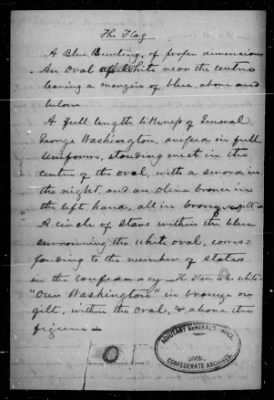 The Flag
A Blue Bunting, of proper dimensions
An Oval of White near the centre
leaving a margin of blue, above and
below
A full length likeness of General
George Washington, in full
Uniform, standing erect in the
centre of the oval, with a sword in
the right, and an olive branch in
the left hand, all in bronze, gilt
A circle of Stars within the blue
surrounding the white oval, corres-
ponding to the number of states
in the Confederacy – the Stars to be white –
"Our Washington" in bronze or
gilt, within the oval, & above the
figure –
ADJUTANT GENERAL'S OFFICE
CONFEDERATE ARCHIVES